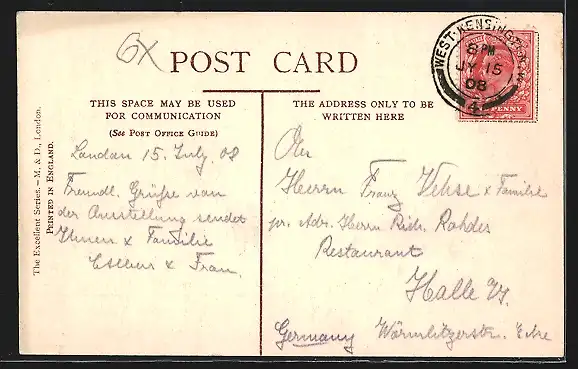 6X
POST CARD
WEST-KENSINGTON.W.
8 PM
JY 15
08
4
PENNY
THIS SPACE MAY BE USED
FOR COMMUNICATION
(See POST OFFICE GUIDE)
London 15. July. 08
Freundl. Grüße von
der Ausstellung sendet
Ihnen x Familie
x Frau.
THE ADDRESS ONLY TO BE
WRITTEN HERE
Herrn Franz Vehse x Familie
pr. Adr. Herrn Rich. Rohdes
Restaurant
Halle
Germany Wörmlitzerstr. Ecke
The Excellent Series.—M. & D., London.
PRINTED IN ENGLAND.